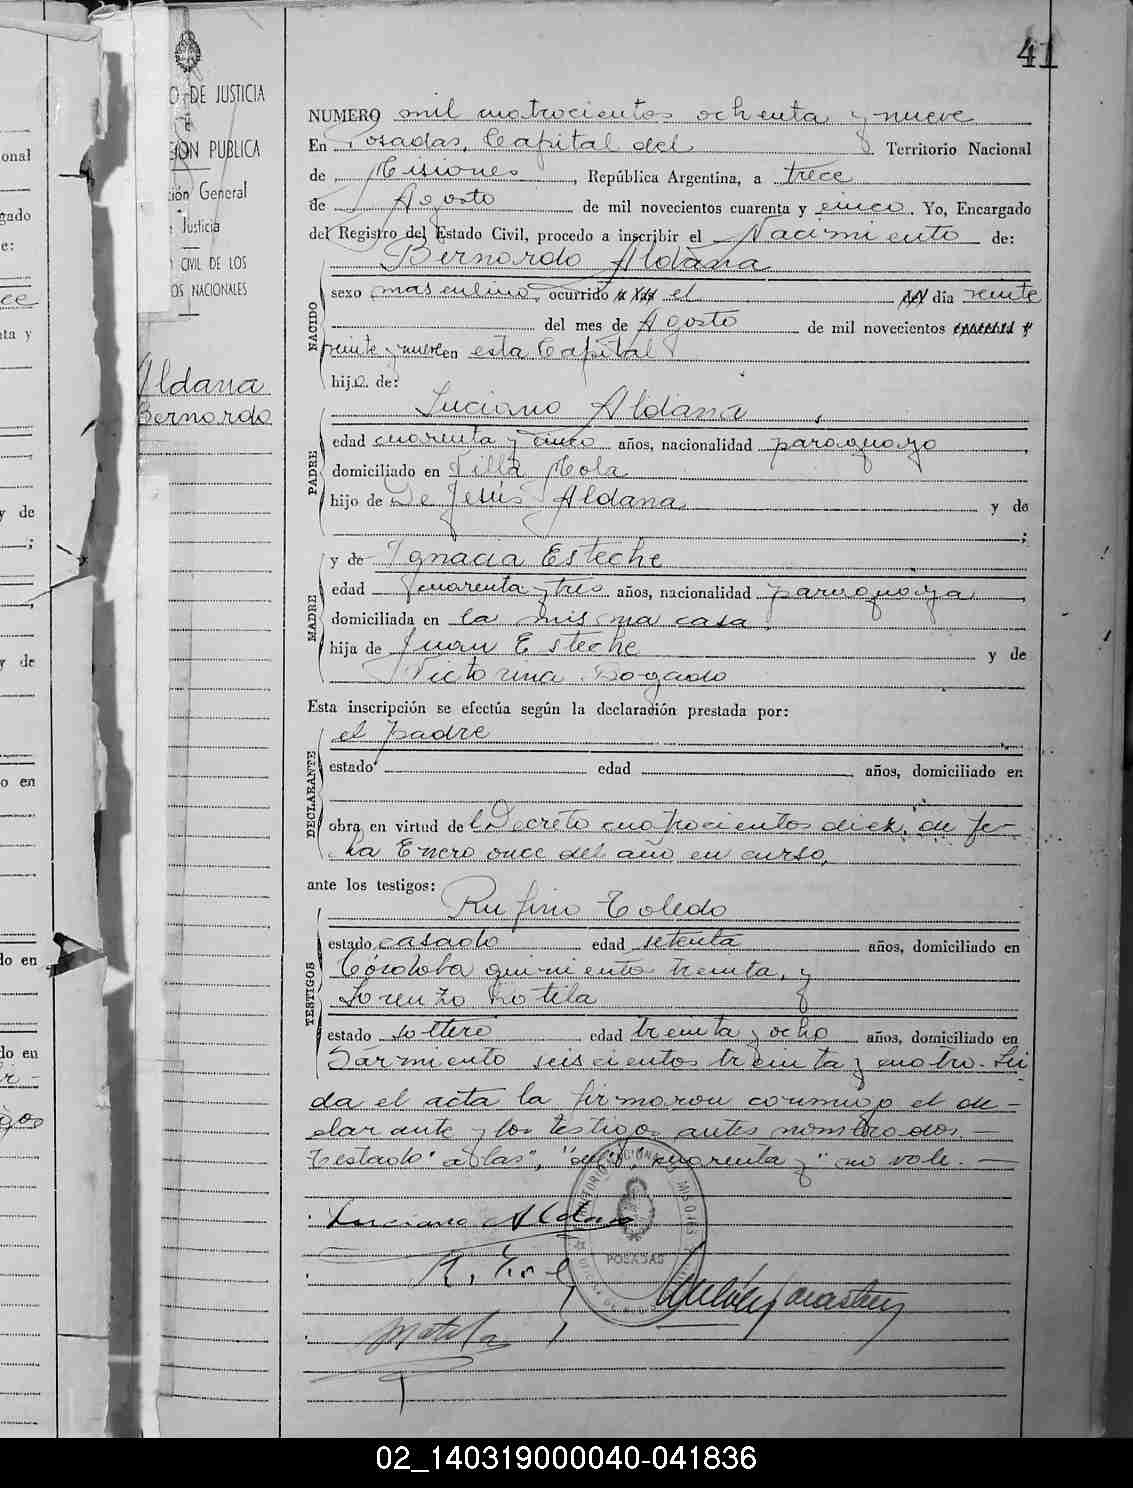 41
O DE JUSTICIA
E
CION PUBLICA
ción General
Justicia
CIVIL DE LOS
OS NACIONALES
Aldana
Bernardo
NUMERO mil cuatrocientos ochenta y nueve
En Posadas, Capital del Territorio Nacional
de Misiones, República Argentina, a trece
de Agosto de mil novecientos cuarenta y cinco. Yo, Encargado
del Registro del Estado Civil, procedo a inscribir el Nacimiento de:
Bernardo Aldana
NACIDO
sexo masculino, ocurrido a las el del dia veinte
del mes de Agosto de mil novecientos cuarenta y
veinte y nueve en esta Capital
hijo de:
Luciano Aldana,
PADRE
edad cuarenta y cinco años, nacionalidad paraguayo
domiciliado en Villa Mola
hijo de De Jesús Aldana y de
;
y de Ignacia Esteche
MADRE
edad cuarenta y tres años, nacionalidad paraguaya,
domiciliada en la misma casa
hija de Juan Esteche y de
Victorina Bogado
Esta inscripción se efectúa según la declaración prestada por:
el padre
DECLARANTE
estado edad años, domiciliado en
obra en virtud del Decreto cuatrocientos diez, de fe-
cha Enero once del año en curso,
ante los testigos:
Rufino Toledo
TESTIGOS
estado casado edad setenta años, domiciliado en
Córdoba quinientos treinta, y
Lorenzo Motila
estado soltero edad treinta y ocho años, domiciliado en
Sarmiento seiscientos treinta y cuatro. Leí
da el acta la firmaron conmigo el de-
clarante y los testigos antes nombrados.—
Testado "a las", "del", "cuarenta y" no vale.—
Luciano Aldana
POSADAS
02_140319000040-041836